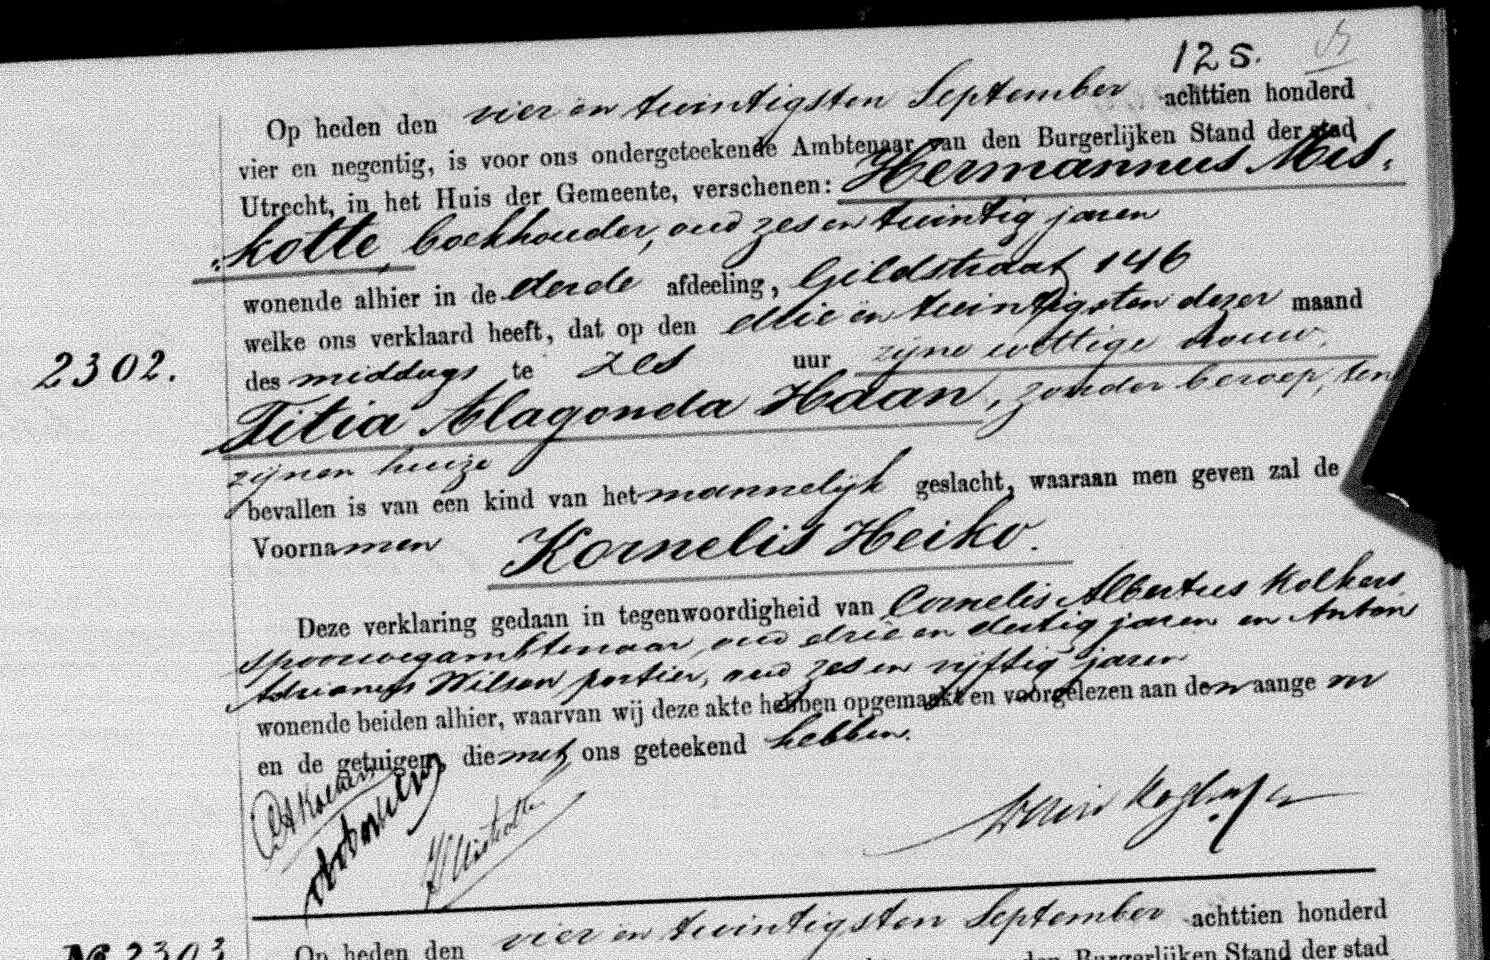 125.
Op heden den vier en twintigsten September achttien honderd
vier en negentig, is voor ons ondergeteekende Ambtenaar van den Burgerlijken Stand der stad
Utrecht, in het Huis der Gemeente, verschenen: Hermannus Mis„
„kotte, boekhouder, oud zes en twintig jaren
wonende alhier in de derde afdeeling, Gildstraat 146
welke ons verklaard heeft, dat op den drie en twintigsten dezer maand
2302.
des middags te zes uur zijne wettige vrouw.
Titia Alagonda Haan, zonder beroep, ten
zijnen huize
bevallen is van een kind van het mannelijk geslacht, waaraan men geven zal de
Voornamen Kornelis Heiko.
Deze verklaring gedaan in tegenwoordigheid van Cornelis Albertus Kolkers
spoorwegambtenaar, oud drie en dertig jaren en Anton
Adrianus Wilson, portier, oud zes en vijftig jaren
wonende beiden alhier, waarvan wij deze akte hebben opgemaakt en voorgelezen aan den aangever
en de getuigen, die met ons geteekend hebben.
HMiskotte
2303
Op heden den vier en twintigsten September achttien honderd
den Burgerlijken Stand der stad